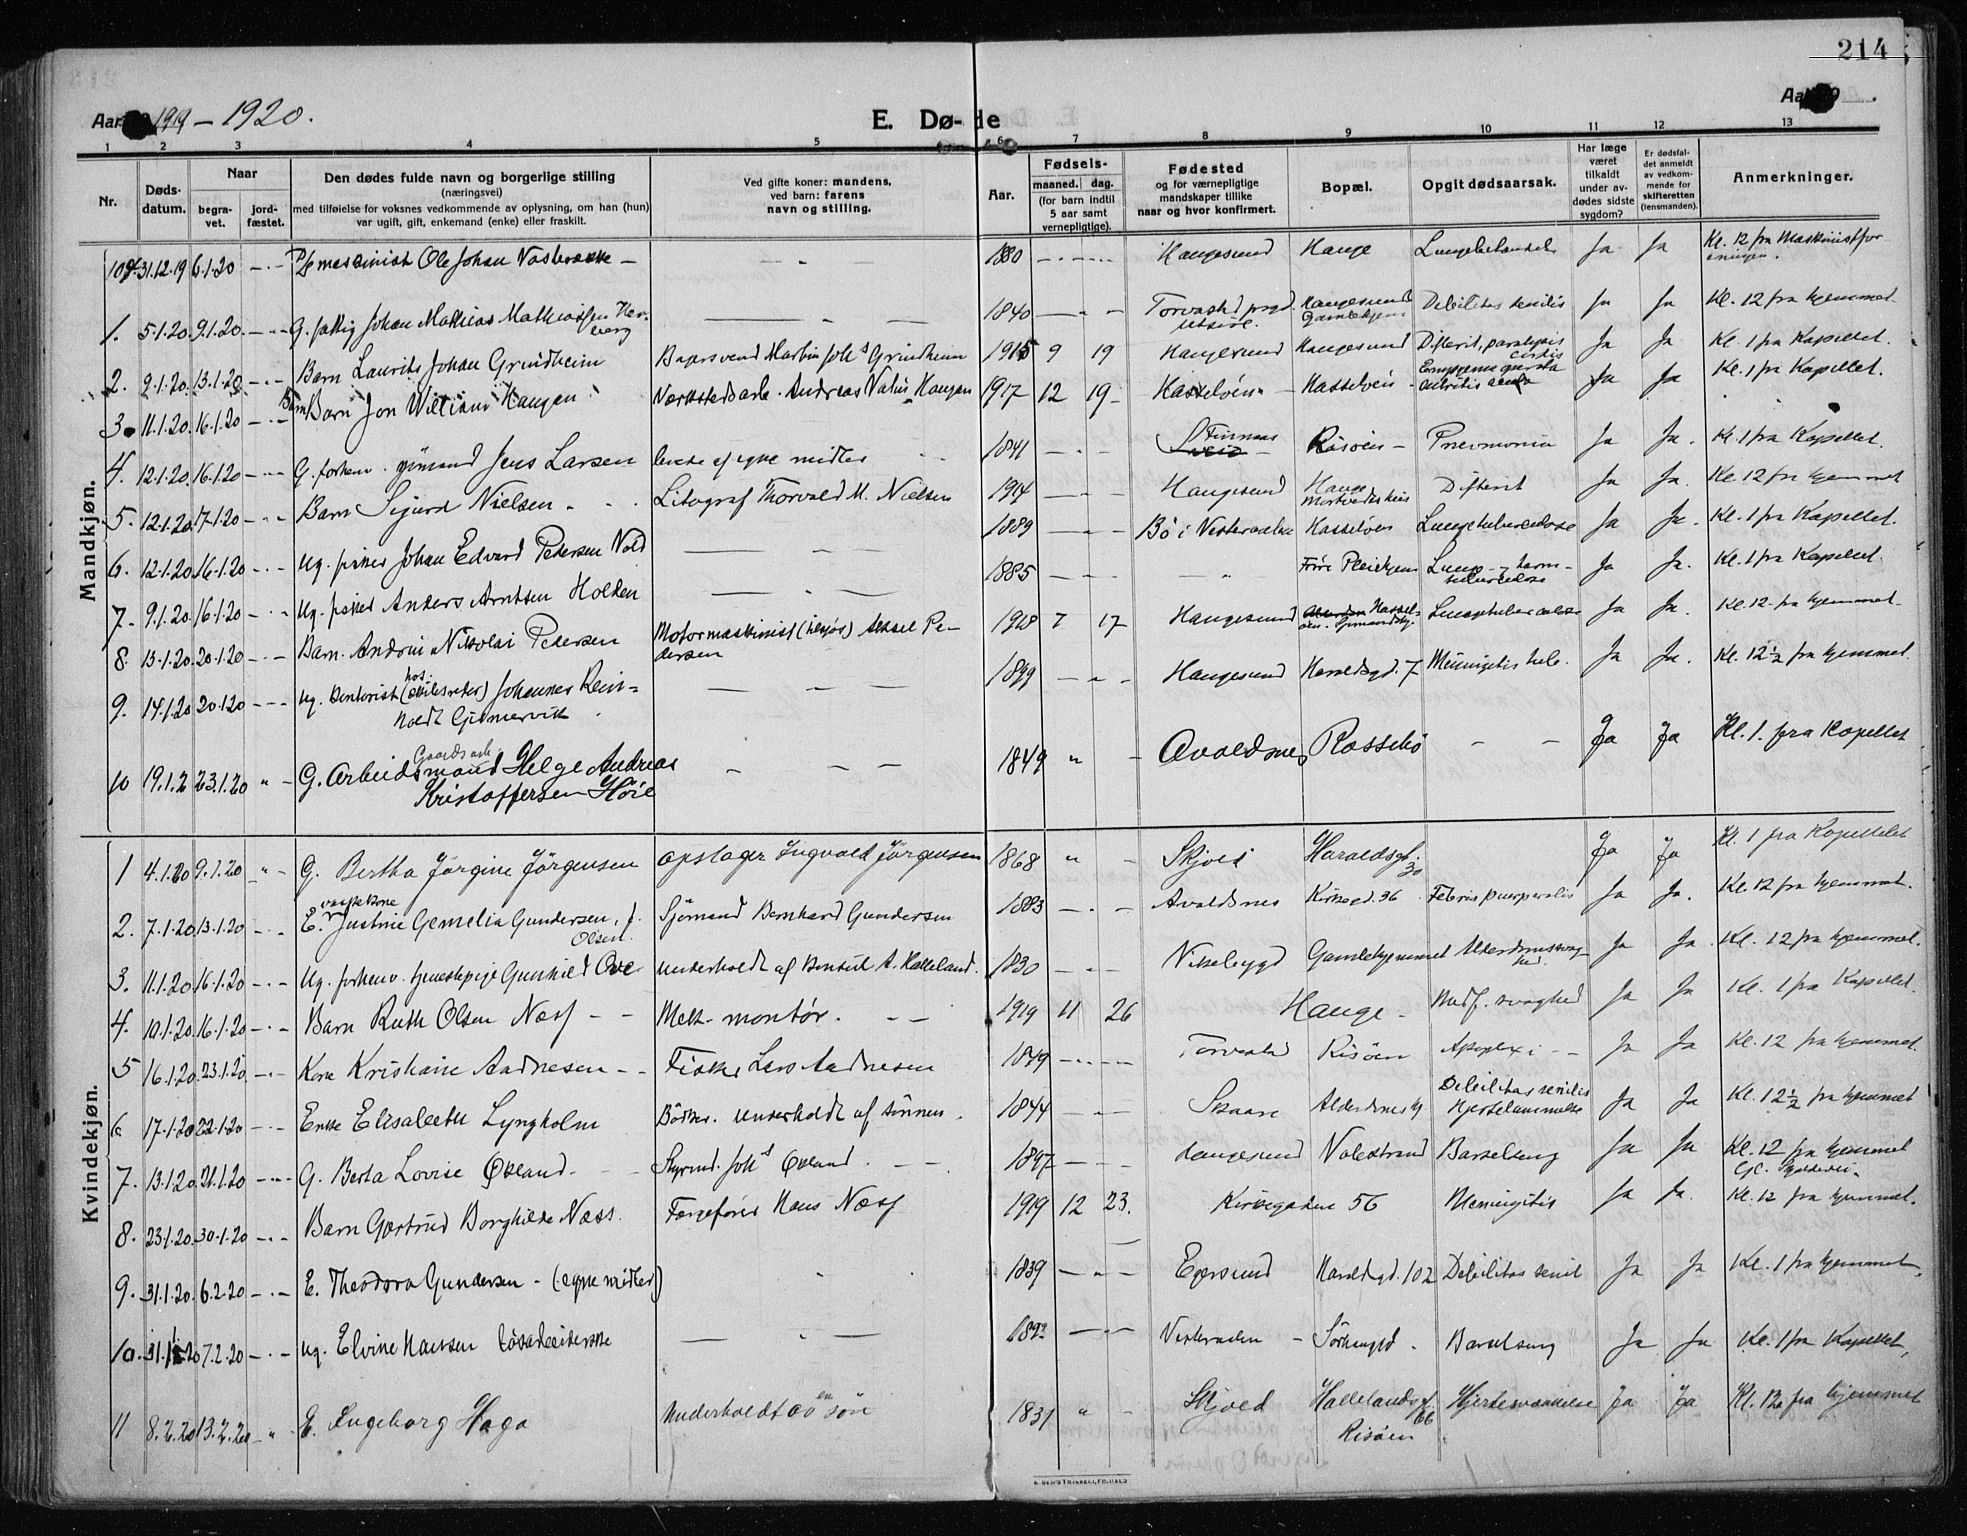 214
Aar 1919 - 1920.
E. Dø- de
Aar 19 .
1 2 3 4 5 6 7 8 9 10 11 12 13
Nr.
Døds-
datum.
Naar
begra-
vet.
jord-
fæstet.
Den dødes fulde navn og borgerlige stilling
(næringsvei)
med tilføielse for voksnes vedkommende av oplysning, om han (hun)
var ugift, gift, enkemand (enke) eller fraskilt.
Ved gifte koner: mandens,
ved barn: farens
navn og stilling.
Aar.
Fødsels-
maaned. dag.
(for barn indtil
5 aar samt
vernepligtige).
Fødested
og for værnepligtige
mandskaper tillike
naar og hvor konfirmert.
Bopæl.
Opgit dødsaarsak.
Har læge
været
tilkaldt
under av-
dødes sidste
sygdom?
Er dødsfal-
det anmeldt
av vedkom-
mende for
skifteretten
(lensmanden).
Anmerkninger.
Mandkjøn.
31.12.19 6.1.20 maskinist Ole Johan 1880 Haugesund Hauge Ja Ja Kl. 12 fra Maskinistfor
eningen.
1. 5.1.20. 9.1.20. G. fattig Johan Mathias 1840 Torvastad Haugesund Debilitas senilis Ja Ja Kl. 12 fra hjemmet.
Gamlehjem
2. 9.1.20. 13.1.20. Barn Laurits Johan Grindheim Martin Joh^s Grindheim 1915 9 19 Haugesund Haugesund Difterit, paralysis Ja Ja Kl. 1 fra Kapellet.
cordis
3. 11.1.20. 16.1.20 Barn Jon William Haugen Værkstedsarb. Andreas Haugen 1917 12 19 Hasseløen Hasseløen Ja Ja Kl. 1 fra Kapellet.
4. 12.1.20. 16.1.20 G. forhenv. sjömand Jens Larsen levde af egne midler 1841 Finnaas Risøen Pnevmonia Ja Ja. Kl. 1 fra Kapellet.
5. 12.1.20. 17.1.20 Barn Sigurd Nielsen Litograf Thorvald M. Nielsen 1914 Haugesund Hauge Difterit Ja Ja. Kl. 12 fra hjemmet
6. 12.1.20. 16.1.20 Ug. fisker Johan Edvard Pedersen Vold 1889 Bö i Vesteraalen Hasseløen Lungetuberculose Ja Ja. Kl. 1 fra Kapellet.
7. 9.1.20. 16.1.20 Ug. fisker Anders Arntsen Holden 1885 Pleiehjem Lunge- og tarm- Ja Ja. Kl. 1 fra Kapellet.
tuberculose
8. 13.1.20. 20.1.20 Barn Nikolai Pedersen Motormaskinist (tilsjös) Aksel Pe-
dersen 1918 7 17 Haugesund Lungetuberculose Ja Ja. Kl. 12 fra hjemmet
9. 14.1.20 20.1.20 Ug. Kontorist Johannes Rein-
holdt Gismervik 1899 Haugesund Haraldsgd. 7 Meningitis tub. Ja Ja. Kl. 12 ½ fra hjemmet.
Gaardsarb.
10 19.1.2 23.1.20 " G. Arbeidsmand Helge Andreas
Kristoffersen Höie 1849 " Avaldsnes Rossebö Ja Ja Kl. 1. fra Kapellet
Kvindekjøn.
1 4.1.20 9.1.20 " G. Bertha Jørgine Jørgensen opslager Ingvald Jørgensen 1868 " Skjold Haraldsgt. Ja Ja Kl. 1 fra Kapellet
30
vaskekone
2. 7.1.20. 13.1.20 E. Justine Gemelia Gundersen, f. Sjømand Bernhard Gundersen 1883 Avaldsnes Kirkegd. 36 Febris puerperalis Ja Ja. Kl. 12 fra hjemmet.
Olsen.
3. 11.1.20. 16.1.20 Ug. forhenv. tjenestepige Gunhild Ove underholdt af Konsul A. Halleland. 1830 Vikebygd Gamlehjemmet Alderdomssvag-
hed. Ja Ja. Kl. 12 fra hjemmet.
4. 10.1.20. 16.1.20 Barn Ruth Olsen Næss Mek. montör. 1919 11 26 Hauge Medf. svaghed Ja Ja Kl. 1 fra Kapellet.
5 16.1.20. 23.1.20. Kone Kristiane Aadnesen Fisker Lars Aadnesen 1849 Torvestad Risöen Apoplexi Ja Ja Kl. 12 fra hjemmet.
6. 17.1.20. 22.1.20 Enke Elisabeth Lyngholm Bödker. underholdt af sönnen. 1844 Skaare Debilitas senilis
Hjertelammelse Ja Ja Kl. 12 ½ fra hjemmet
7. 13.1.20. 21.1.20 G. Berta Lovise Økland Styrmd. Joh^s Økland. 1897 Haugesund Valestrand Barselseng Ja Ja Kl. 12 fra hjemmet
8. 23.1.20. 30.1.20 Barn Gertrud Borghilde Næss. Færgefører Hans Næss 1919 12 23. Kirkegaden 56 Meningitis Ja Ja. Kl. 12 fra hjemmet.
9. 31.1.20. 6.2.20 E. Theodora Gundersen - (egne midler) 1839 Egersund Haraldsgd. 102 Debilitas senil Ja Ja Kl. 1 fra hjemmet.
10. 31.1.20 7.2.20 Ug. Elvine Hansen løsarbeiderske Vesteraalen Barselseng Ja Ja Kl. 1 fra Kapellet.
11 8.2.20 13.2.20 " E. Ingeborg Haga Underholdt av en sön 1831 " Skjold Hallelandsgt.
66
Risöen Hjertesvækkelse Ja Ja Kl. 12 fra hjemmet